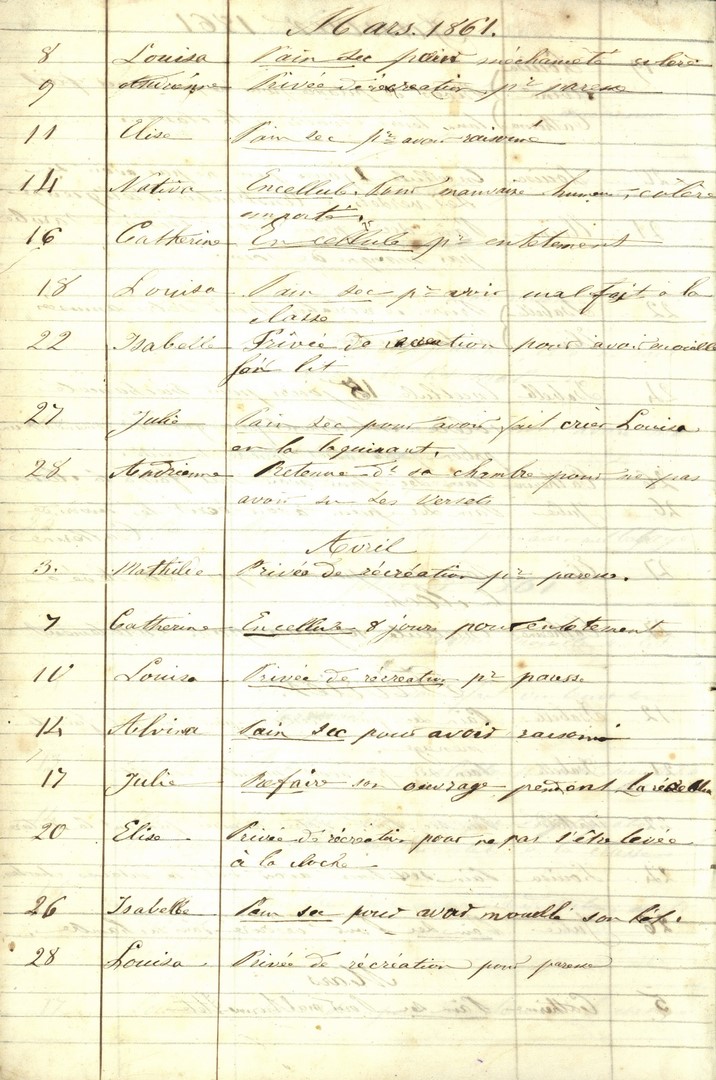 Mars. 1861.
8 Louisa Pain sec pour méchanceté colère
9 Andrienne Privée de récréation pr paresse
11 Elise Pain sec pr avoir raisonné
14 Nativa En cellule. Pour mauvaise humeur, colère
emporté.
16 Catherine En cellule pr entetement
18 Louisa Pain sec pr avoir mal fait à la
classe
22 Isabelle Privée de récréation pour avoir mouillé
son lit
27 Julie Pain sec pour avoir fait crier Louisa
en la taquinant.
28 Andrienne Retenue ds sa chambre pour ne pas
avoir su ses versets
Avril
3. Mathilde Privée de récréation pr paresse.
7 Catherine En cellule 8 jours pour entetement
10 Louisa Privée de récréation pr paresse
14 Alvina Pain sec pour avoir raisonné
17 Julie Refaire son ouvrage pendant la récréation
20 Elise Privée de récréation pour ne pas s'être levée
à la cloche
26 Isabelle Pain sec pour avoir mouillé son lit.
28 Louisa Privée de récréation pour paresse